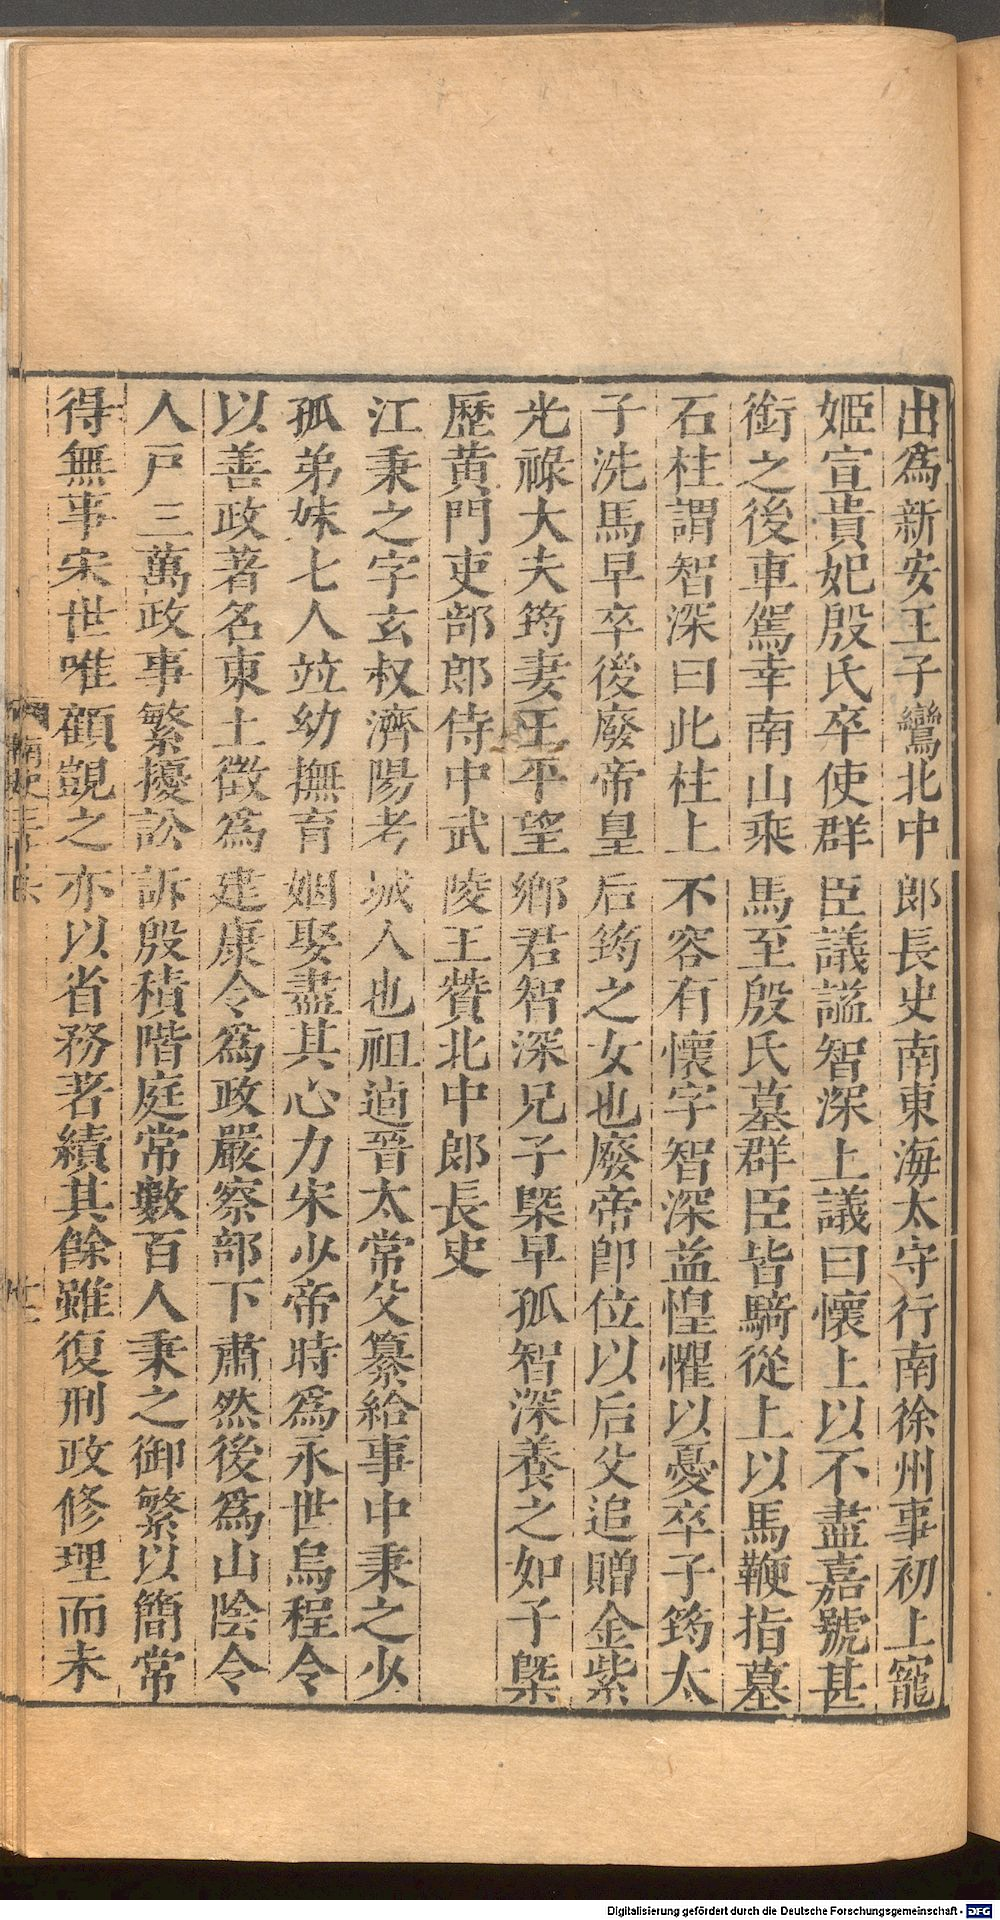 出爲新安王子鸞北中郎長史南東海太守行南徐州事初上寵
姬宣貴妃殷氏卒使群臣議謚智深上議曰懷上以不盡嘉號甚
銜之後車駕幸南山乘馬至殷氏墓群臣皆騎從上以馬鞭指墓
石柱謂智深曰此柱上不容有懷字智深益惶懼以憂卒子筠太
子洗馬早卒後廢帝皇后筠之女也廢帝卽位以后父追贈金紫
光祿大夫筠妻王平望鄉君智深兄子槩早孤智深養之如子槩
歷黃門吏部郎侍中武陵王贊北中郎長史
江秉之字玄叔濟陽考城人也祖逌晉太常父纂給事中秉之少
孤弟妹七人竝幼撫育姻娶盡其心力宋少帝時爲永世烏程令
以善政著名東土徵爲建康令爲政嚴察部下肅然後爲山陰令
人戸三萬政事繁擾訟訴殷積階庭常數百人秉之御繁以簡常
得無事宋世唯顧覬之亦以省務著績其餘雖復刑政修理而未
Digitalisierung gefördert durch die Deutsche Forschungsgemeinschaft - DFG